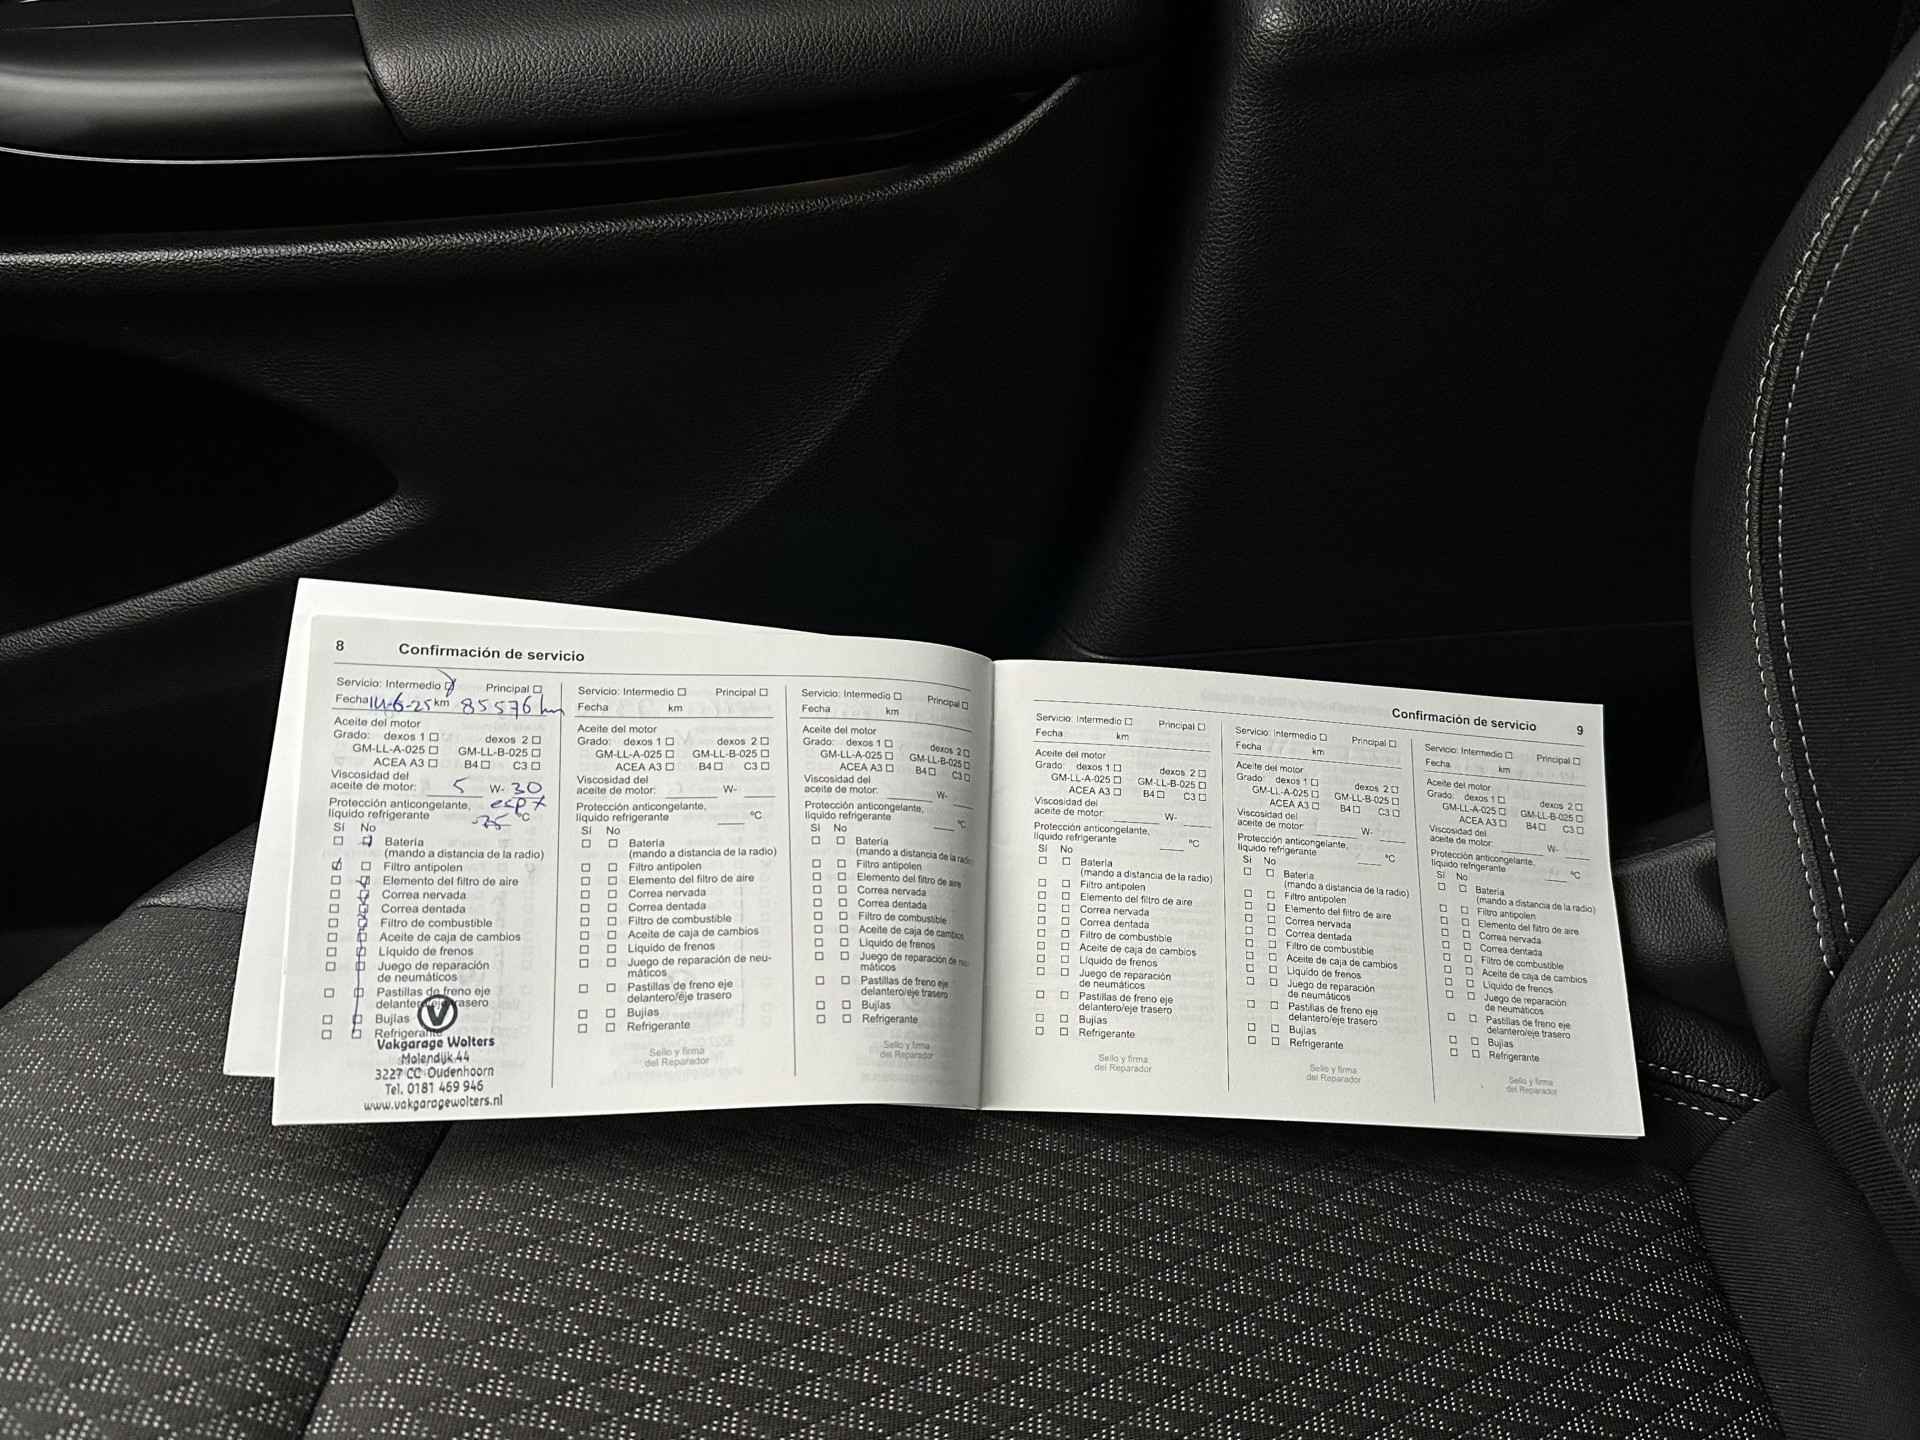 8 Confirmación de servicio
Servicio: Intermedio ☑ Principal ☐
Fecha 14-6-25 km 85576 km
Aceite del motor
Grado: dexos 1 ☐ dexos 2 ☐
GM-LL-A-025 ☐ GM-LL-B-025 ☐
ACEA A3 ☐ B4 ☐ C3 ☐
Viscosidad del
aceite de motor: 5 W- 30
Protección anticongelante,
líquido refrigerante °C
Sí No
Batería
(mando a distancia de la radio)
Filtro antipolen
Elemento del filtro de aire
Correa nervada
Correa dentada
Filtro de combustible
Aceite de caja de cambios
Líquido de frenos
Juego de reparación
de neumáticos
Pastillas de freno eje
delantero/eje trasero
Bujías
Refrigerante
V
Vakgarage Wolters
Molendijk 44
3227 CC Oudenhoorn
Tel. 0181 469 946
www.vakgaragewolters.nl
Servicio: Intermedio ☐ Principal ☐
Fecha km
Aceite del motor
Grado: dexos 1 ☐ dexos 2 ☐
GM-LL-A-025 ☐ GM-LL-B-025 ☐
ACEA A3 ☐ B4 ☐ C3 ☐
Viscosidad del
aceite de motor: W-
Protección anticongelante,
líquido refrigerante °C
Sí No
Batería
(mando a distancia de la radio)
Filtro antipolen
Elemento del filtro de aire
Correa nervada
Correa dentada
Filtro de combustible
Aceite de caja de cambios
Líquido de frenos
Juego de reparación de neu-
máticos
Pastillas de freno eje
delantero/eje trasero
Bujías
Refrigerante
Sello y firma
del Reparador
Servicio: Intermedio ☐ Principal ☐
Fecha km
Aceite del motor
Grado: dexos 1 ☐ dexos 2 ☐
GM-LL-A-025 ☐ GM-LL-B-025 ☐
ACEA A3 ☐ B4 ☐ C3 ☐
Viscosidad del
aceite de motor: W-
Protección anticongelante,
líquido refrigerante °C
Sí No
Batería
(mando a distancia de la radio)
Filtro antipolen
Elemento del filtro de aire
Correa nervada
Correa dentada
Filtro de combustible
Aceite de caja de cambios
Líquido de frenos
Juego de reparación de neu-
máticos
Pastillas de freno eje
delantero/eje trasero
Bujías
Refrigerante
Sello y firma
del Reparador
Confirmación de servicio 9
Servicio: Intermedio ☐ Principal ☐
Fecha km
Aceite del motor
Grado: dexos 1 ☐ dexos 2 ☐
GM-LL-A-025 ☐ GM-LL-B-025 ☐
ACEA A3 ☐ B4 ☐ C3 ☐
Viscosidad del
aceite de motor: W-
Protección anticongelante,
líquido refrigerante °C
Sí No
Batería
(mando a distancia de la radio)
Filtro antipolen
Elemento del filtro de aire
Correa nervada
Correa dentada
Filtro de combustible
Aceite de caja de cambios
Líquido de frenos
Juego de reparación
de neumáticos
Pastillas de freno eje
delantero/eje trasero
Bujías
Refrigerante
Sello y firma
del Reparador
Servicio: Intermedio ☐ Principal ☐
Fecha km
Aceite del motor
Grado: dexos 1 ☐ dexos 2 ☐
GM-LL-A-025 ☐ GM-LL-B-025 ☐
ACEA A3 ☐ B4 ☐ C3 ☐
Viscosidad del
aceite de motor: W-
Protección anticongelante,
líquido refrigerante °C
Sí No
Batería
(mando a distancia de la radio)
Filtro antipolen
Elemento del filtro de aire
Correa nervada
Correa dentada
Filtro de combustible
Aceite de caja de cambios
Líquido de frenos
Juego de reparación
de neumáticos
Pastillas de freno eje
delantero/eje trasero
Bujías
Refrigerante
Sello y firma
del Reparador
Servicio: Intermedio ☐ Principal ☐
Fecha km
Aceite del motor
Grado: dexos 1 ☐ dexos 2 ☐
GM-LL-A-025 ☐ GM-LL-B-025 ☐
ACEA A3 ☐ B4 ☐ C3 ☐
Viscosidad del
aceite de motor: W-
Protección anticongelante,
líquido refrigerante °C
Sí No
Batería
(mando a distancia de la radio)
Filtro antipolen
Elemento del filtro de aire
Correa nervada
Correa dentada
Filtro de combustible
Aceite de caja de cambios
Líquido de frenos
Juego de reparación
de neumáticos
Pastillas de freno eje
delantero/eje trasero
Bujías
Refrigerante
Sello y firma
del Reparador